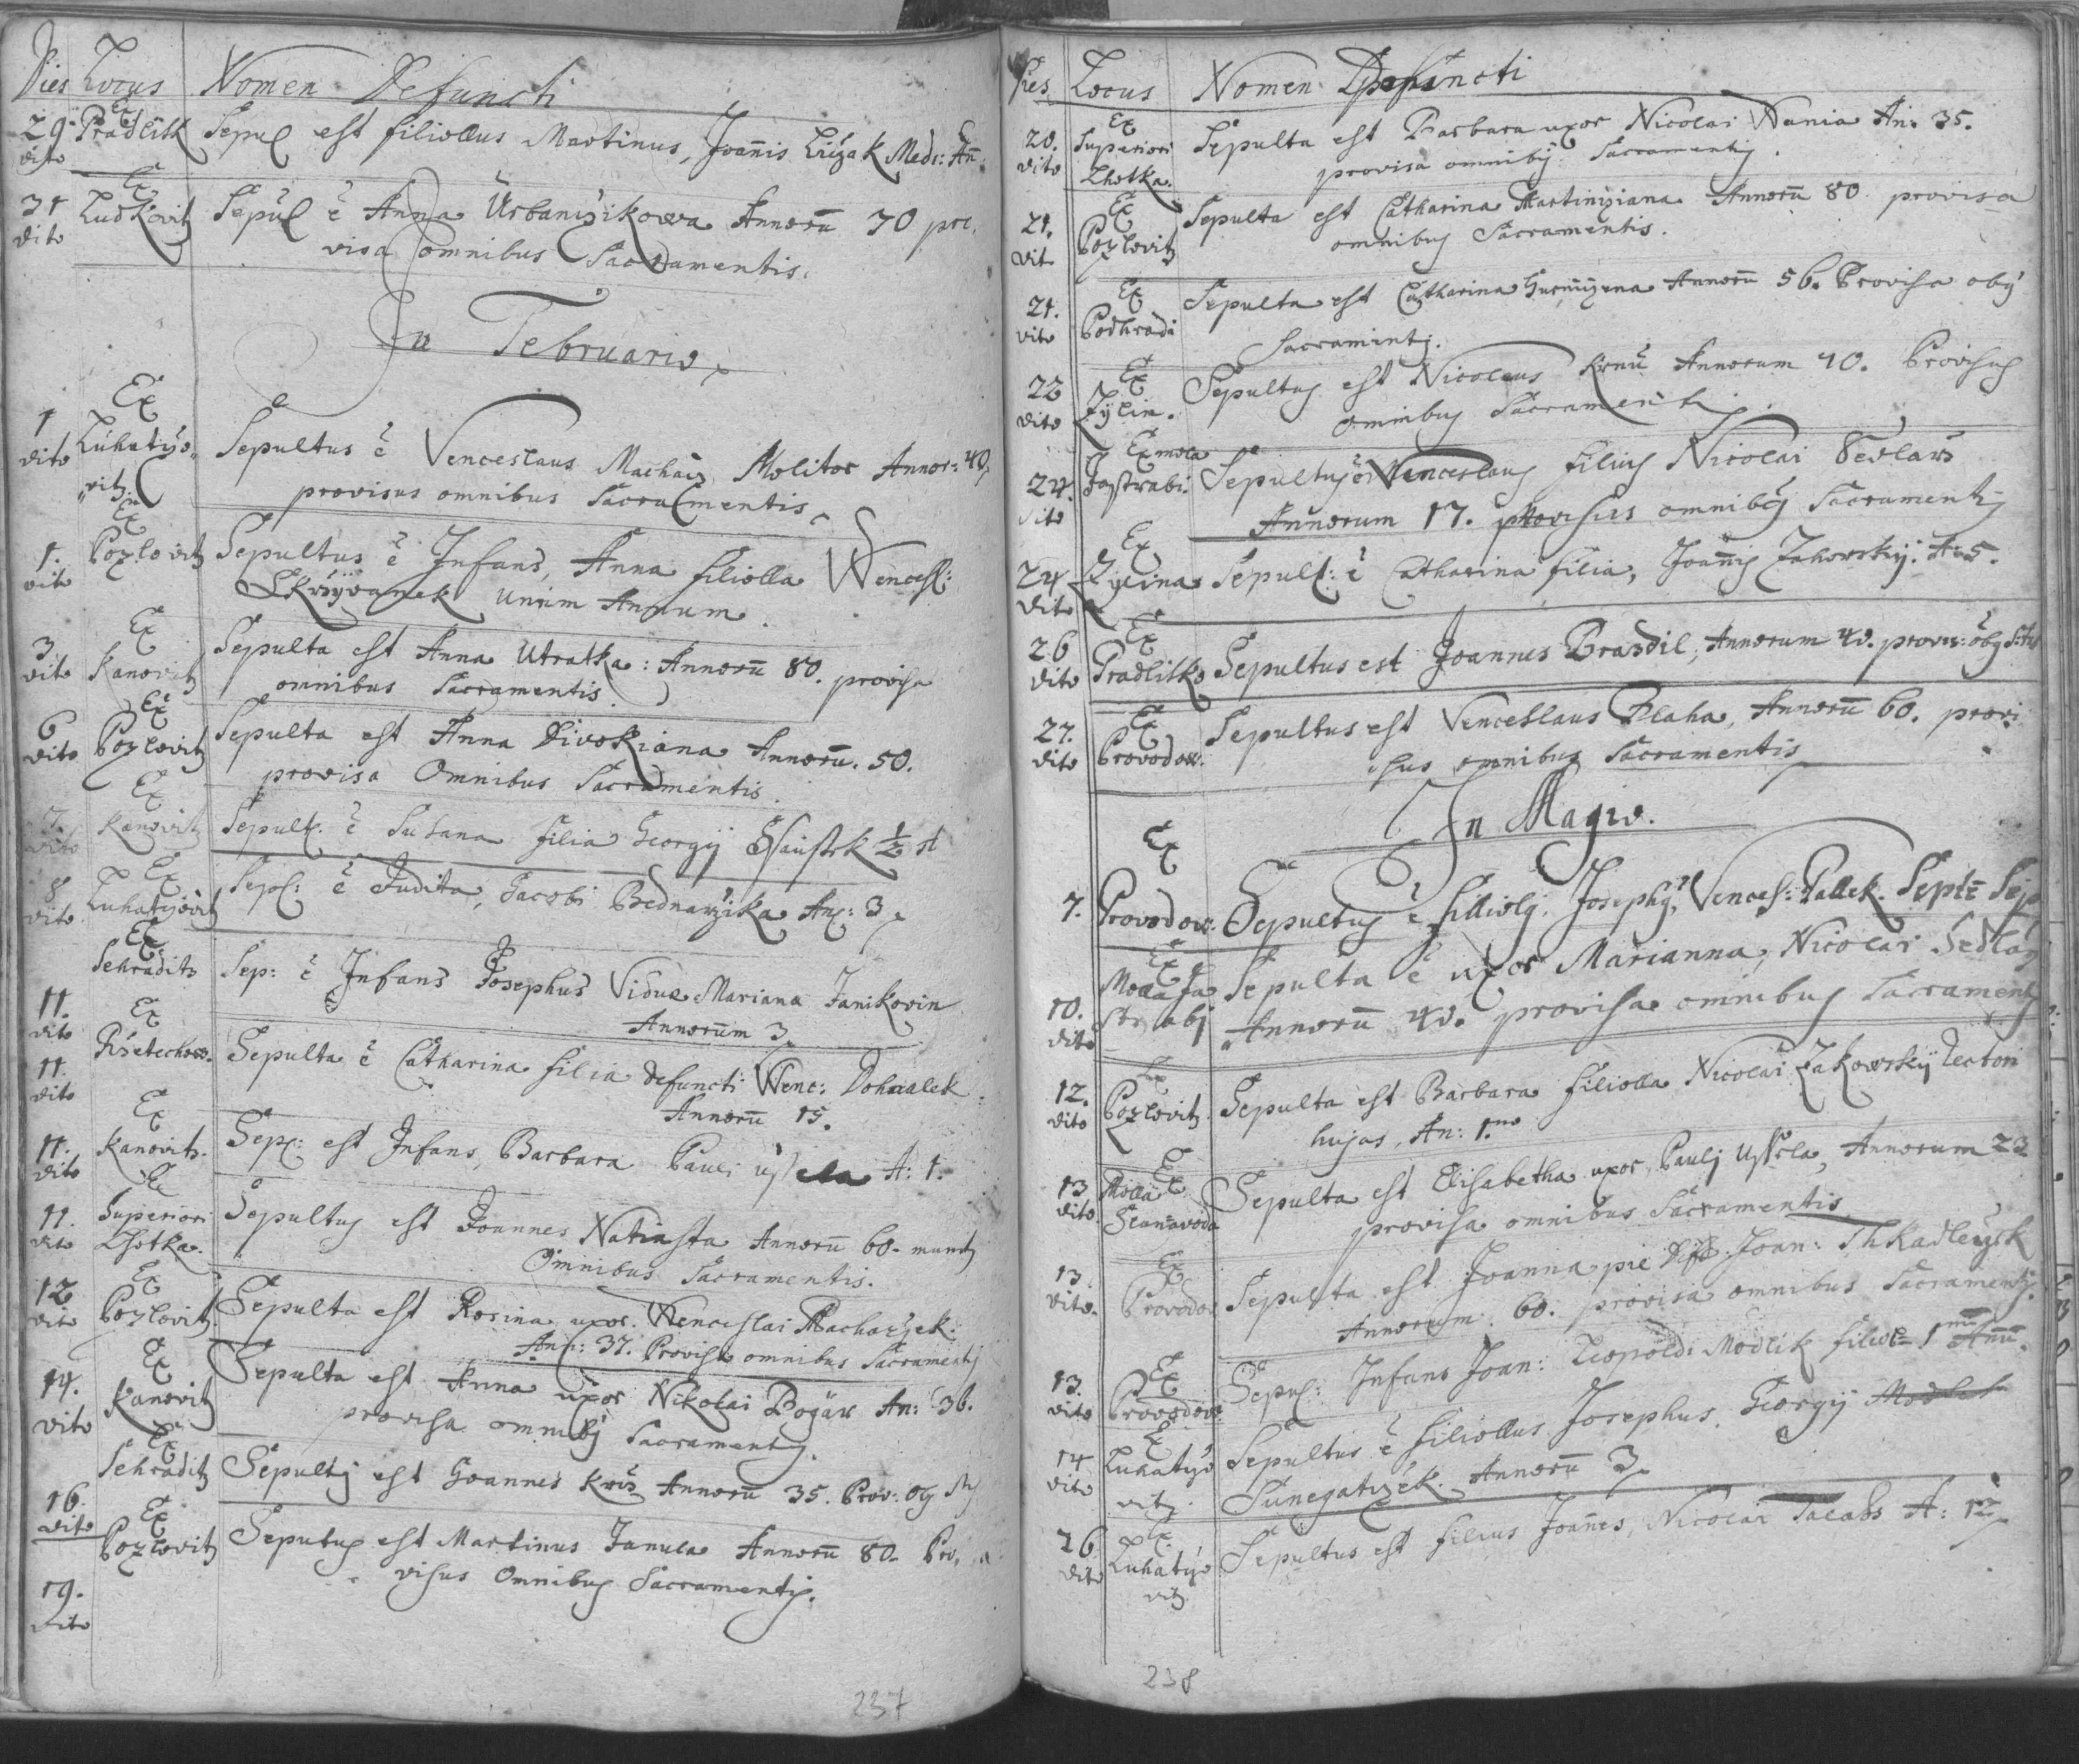 Dies Locus Nomen Defuncti
29. dito Ex Pradlisk Sepul est filiollus Martinus, Joañis Meds: Añ:
31 dito Ex Ludkovitz Sepul ē Anna Urbanižikowa Annorū 70 pro,
visa omnibus Sacramentis.
In Februario
1 dito Ex Luhatijo,,
vitz Sepultus ē Venceslaus Machacz Molitor Annor: 40,
provisus omnibus Sacramentis
1. dito Ex Pozlovitz Sepultus ē Infans, Anna filiolla Wencesl:
Skrzývanek unum Annum.
3 dito Ex Kanovitz Sepulta est Anna Utratka: Annorū 80. provisa
omnibus Sacramentis
6 dito Ex Pozlovitz Sepulta est Anna Divokiana Annorū. 50.
provisa Omnibus Sacramentis.
7. dito Ex Kanovitz Sepult. ē Susana filia Georgij ½
8 dito Ex Luhatijovitz Sepl: ē Judita, Jacobi Bednaržika An: 3
11. dito Ex Sehradits Sep: ē Infans Josephus Viduæ Mariana Janikovin
Annorum 3
11. dito Ex Rsetechow. Sepulta ē Catharina filia defuncti Wenc: Dohnalek
Annorū 15.
11. dito Ex Kanovits. Sepl: est Infans, Barbara Pauli ussela A: 1.
11. dito Ex Superiori
Lhotka. Sepultus est Joannes Annorū 60. munitz
Omnibus Sacramentis.
12 dito Ex Pozlovitz. Sepulta est Rosina uxor. Wenceslai Machaczek.
An: 37. Provisa omnibus Sacramentij
14. dito Ex Kanovitz Sepulta est Anna uxor Nikolai Bogar An: 36.
provisa omnibij Sacramentij.
16. dito Ex Sehraditz Sepultij est Goannes Križ Annorū 35. Prov:
19. dito Ex Pozlovitz Seputus est Martinus Janula Annorū 80. Pro,
visus Omnibus Sacramentis.
237
Dies Locus Nomen Defuncti
20. dito Ex Superiori
Lhotka. Sepulta est Barbara uxor Nicolai Wania An: 35.
provisa omnibij Sacramentij.
21. dito Ex Pozlovitz Sepulta est Catharina Martinziana Annorū 80 provisa
omnibus Sacramentis.
21. dito Ex Podhradi Sepulta est Catharina Annorū 56. Provisa obij
Sacramintj.
22 dito Ex Zylin. Sepultus est Nicolaus Krnū Annorum 40. Provisus
omnibus Sacramentis.
24. dito Ex mola
Jastrabi. Sepultus ē Wenceslaus filius Nicolai Sedlarz
Annorum 17. provisus omnibij Sacramentij
24 dito Ex Sepult: ē Catharina filia, Joannis Zakowskij. A: 5.
26 dito Ex Pradlisko Sepultus est Joannes Brazdil, Annorum 40. provis:
27. dito Ex Provodow. Sepultus est Venceslaus Blaha, Annorū 60. provi
,,sus omnibus Sacramentis
In Magio.
7. Ex Provodow. Sepultus ē filliolij. Josephij, Vencesl: Gallek. Septē
10. dito Ex Molla Ja
strabj Sepulta ē uxor Marianna, Nicolai Sedlarz
Annorū 40. provisa omnibus Sacramentij
12. dito Ex Pozlovitz. Sepulta est Barbara filiolla Nicolai Zakowskij
hujas, An: 1.mo
13 dito. Ex Molla
Slanavoda Sepulta est Elisabetha uxor, Paulj Ussela, Annorum 23
provisa omnibus Sacramentis
13. dito. Ex Provodow Sepulta est Joanna pie Joan: Thkadlcyk
Annorum. 60. provisa omnibus Sacramentij.
13. dito Ex Provodow. Sepul: Infans Joan: Leopoldi Modlik
14 dito Ex Luhatijo
vitz. Sepultus ē filiollus Josephus, Georgij
Sunegatzek. Annorū 3
26 dito Ex Luhatijo
vitz Sepultus est filius Joannes, Nicolai A:
238